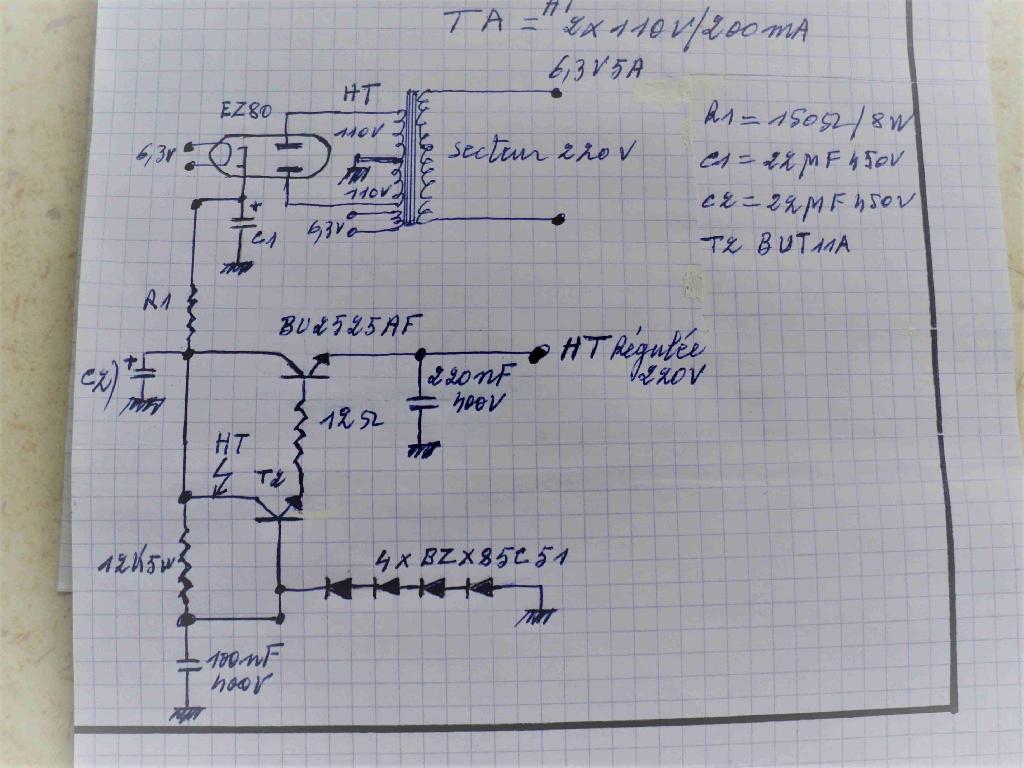 HT
TA = 2x110V/200mA
6,3V5A
HT
EZ80
110V
6,3V
secteur 220V
110V
6,3V
C1
R1 = 150Ω/8W
C1 = 22µF 450V
C2 = 22µF 450V
T2 BUT11A
R1
BU2525AF
HT Régulée
220V
C2
220nF
400V
12Ω
HT
T2
12K5W
4xBZX85C51
100nF
400V